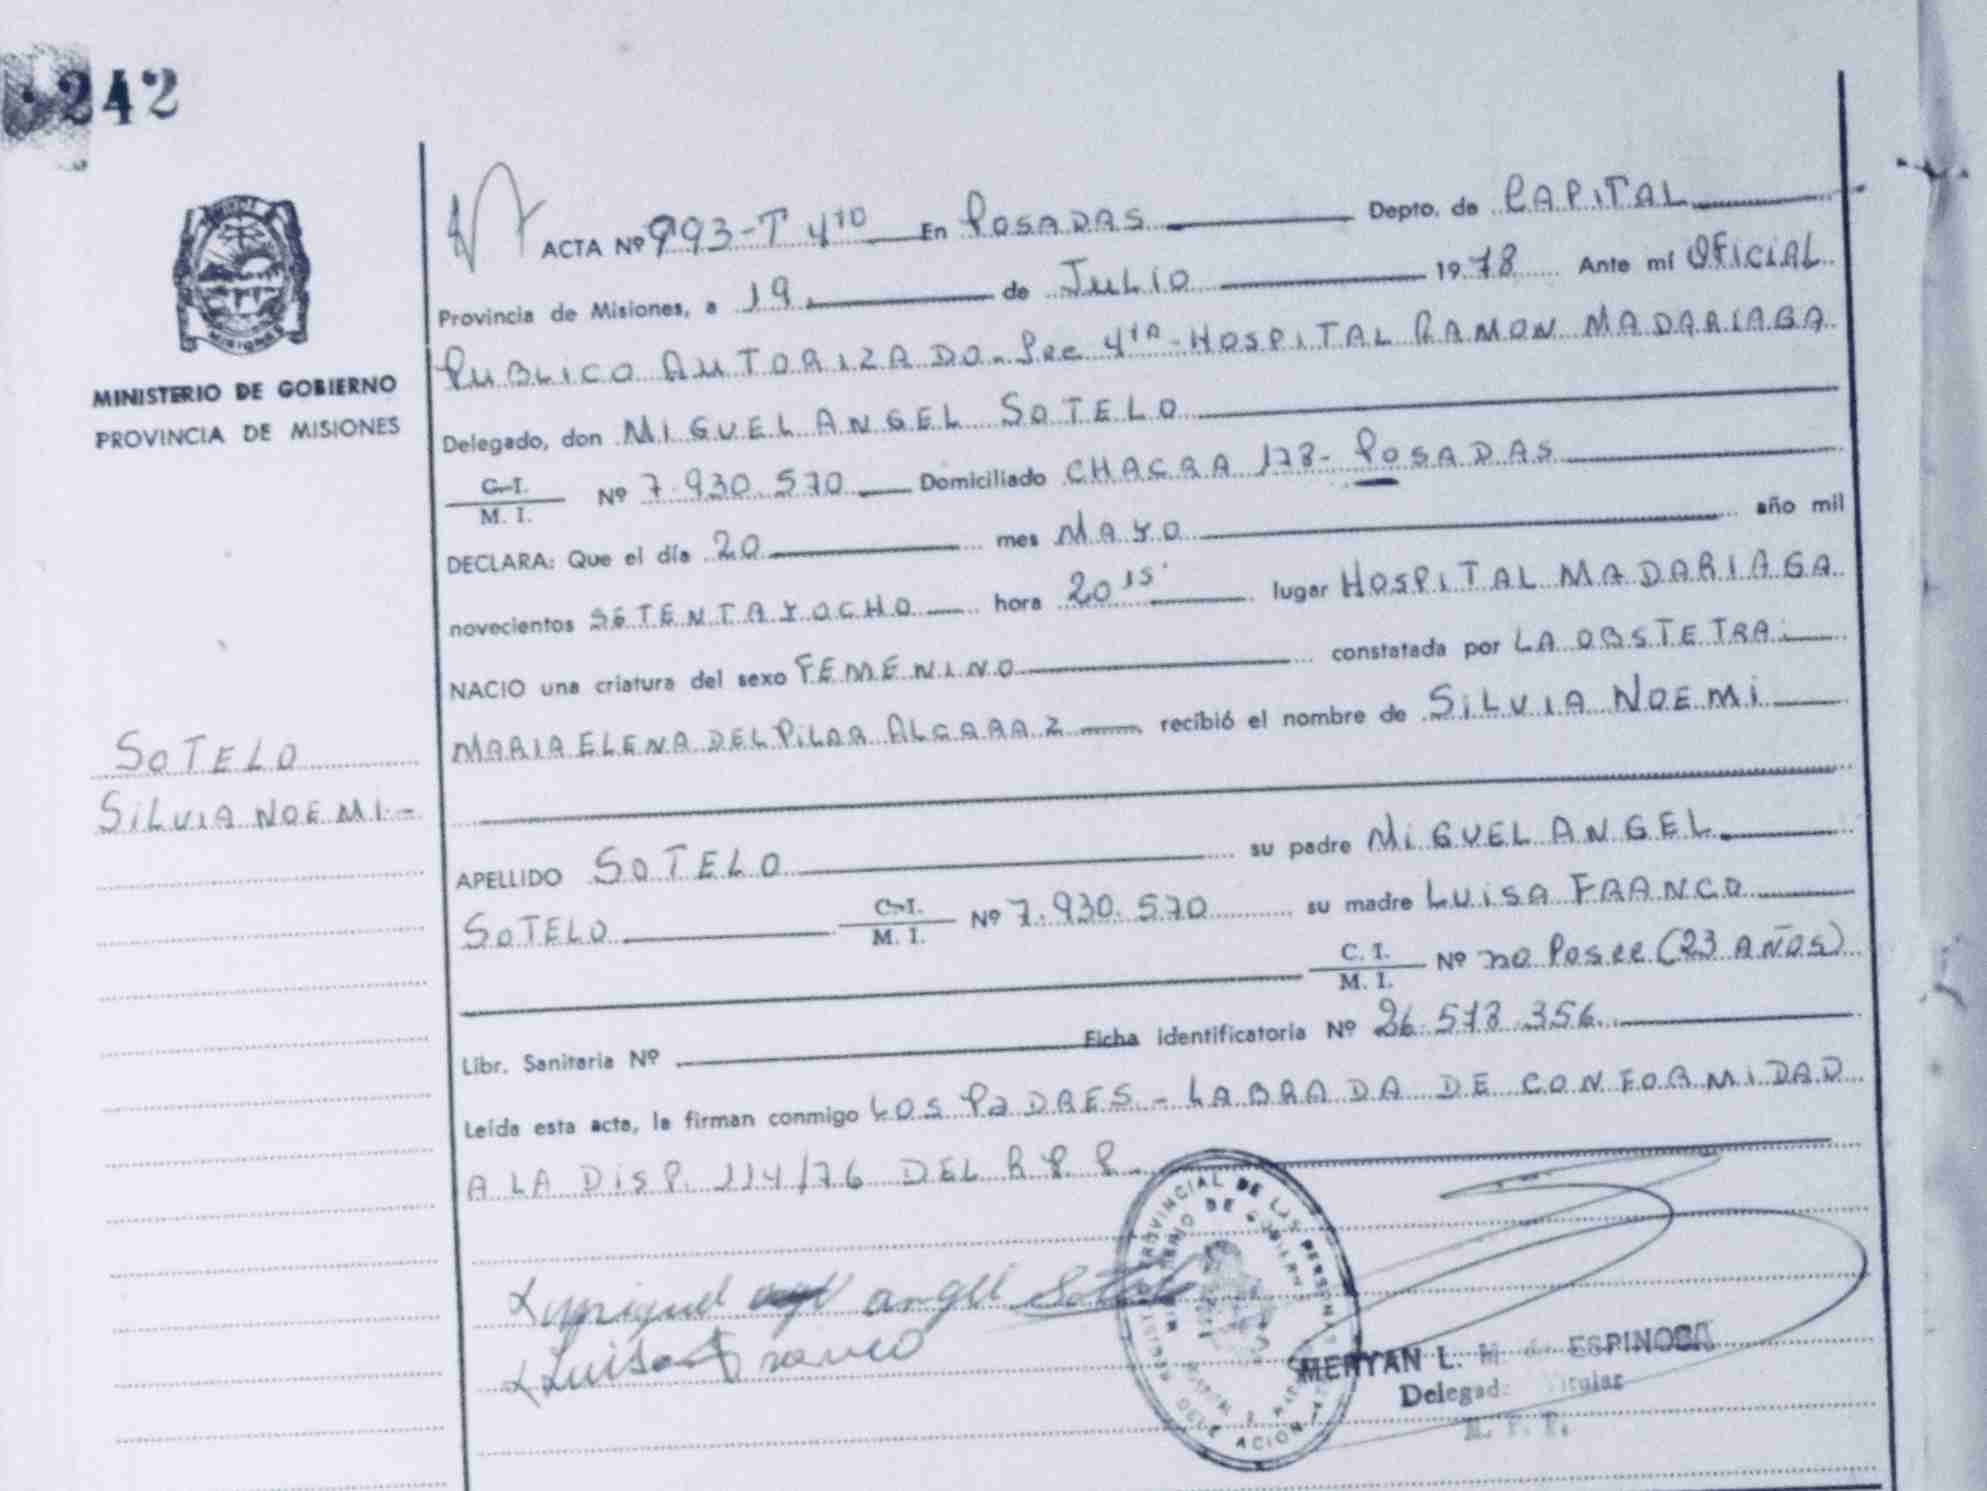 242
MINISTERIO DE GOBIERNO
PROVINCIA DE MISIONES
SOTELO
SILVIA NOEMI.-
ACTA Nº 993-T 4to En POSADAS Depto. de CAPITAL
Provincia de Misiones, a 19 de JULIO 1978 Ante mí OFICIAL
PUBLICO AUTORIZADO. Sec 4ta-HOSPITAL RAMON MADARIAGA
Delegado, don MIGUEL ANGEL SOTELO
C.I. M. I. Nº 7.930.570 Domiciliado CHACRA 178- POSADAS
DECLARA: Que el día 20 mes MAYO año mil
novecientos SETENTA Y OCHO hora 20 15' lugar HOSPITAL MADARIAGA
NACIO una criatura del sexo FEMENINO constatada por LA OBSTETRA:
MARIA ELENA DEL PILAR ALCARAZ recibió el nombre de SILVIA NOEMI
APELLIDO SOTELO su padre MIGUEL ANGEL
SOTELO C.I. M. I. Nº 7.930.570 su madre LUISA FRANCO
C. I. M. I. Nº no Posee (23 AÑOS)
Libr. Sanitaria Nº Ficha identificatoria Nº 26.578.356
Leída esta acta, la firman conmigo LOS PADRES - LABRADA DE CONFORMIDAD
A LA DISP. 114/76 DEL R.P.P.
miguel angel Sotelo
Luisa Franco
PROVINCIAL DE LAS PERSONAS
MERYAN L. ESPINOSA
Delegada Titular
R. P. P.